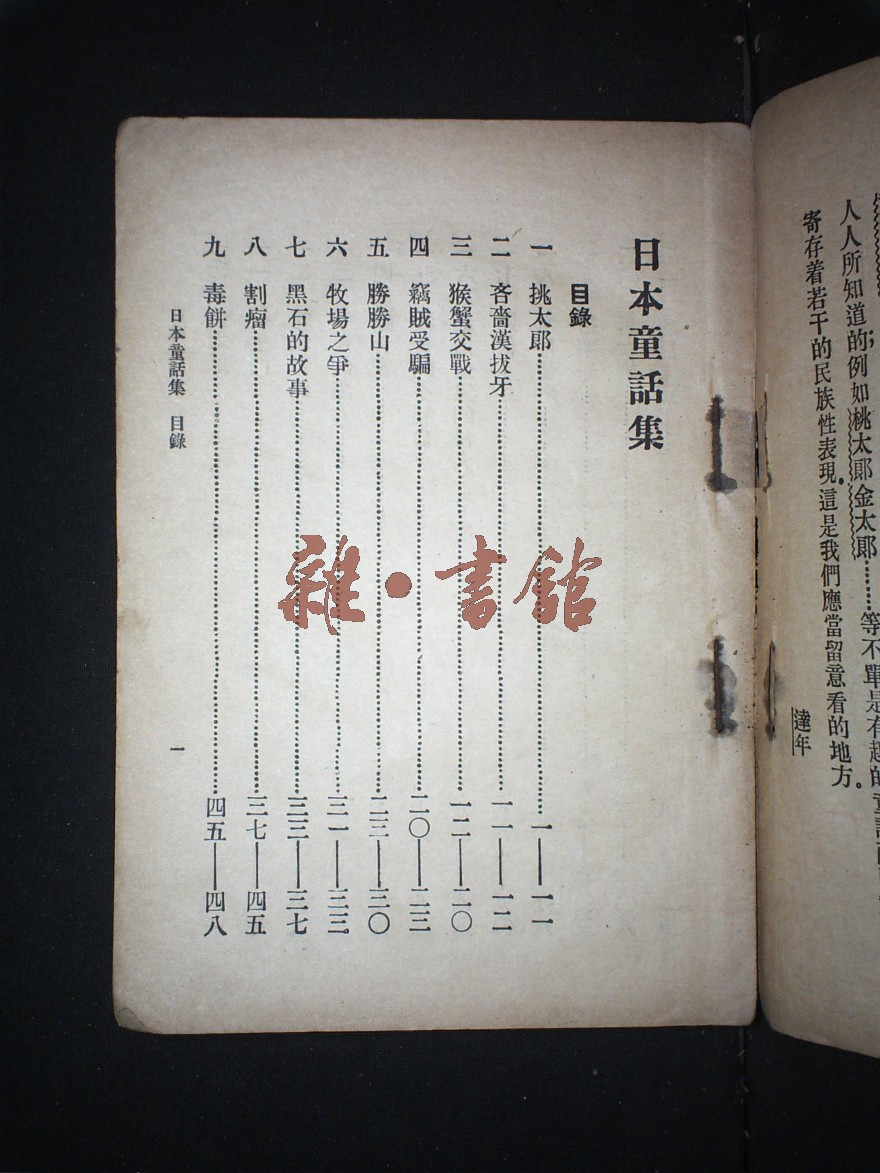 人人所知道的;例如桃太郎金太郎……等不單是有趣的童話
寄存着若干的民族性表現.這是我們應當留意看的地方.
達年
日本童話集
目錄
一 挑太郎……一——一一
二 吝嗇漢拔牙……一一——一二
三 猴蟹交戰……一二——二〇
四 竊賊受騙……二〇——二三
五 勝勝山……二三——三〇
六 牧場之爭……三一——三三
七 黑石的故事……三三——三七
八 割瘤……三七——四五
九 毒餅……四五——四八
日本童話集 目錄 一
雜·書館